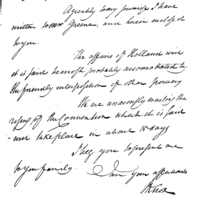 Agreably to my promise I have
written to Greene, and have enclosed it
to you
The affairs of Holland were
it is said be most probably accomodated by
the friendly interposition of other powers
We are anxiously waiting the
of the Convention which it is said
will take place in about 10 days
I beg you to present me
to your family. I am yours affectionately